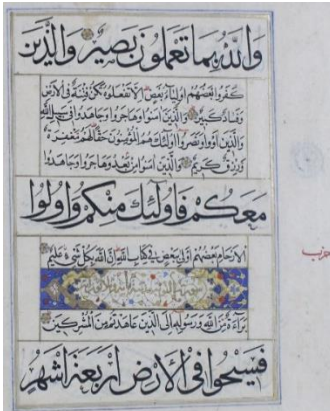 وَاللهُ بِمَا تَعْمَلُونَ بَصِيرٌ وَالَّذِينَ
كَفَرُوا بَعْضُهُمْ اَوْلِيَاءُ بَعْضٍ اِلَّا تَفْعَلُوهُ تَكُنْ فِتْنَةٌ فِى الْاَرْضِ
وَفَسَادٌ كَبِيرٌ وَالَّذِينَ اٰمَنُوا وَهَاجَرُوا وَجَاهَدُوا فِى سَبِيلِ اللهِ
وَالَّذِينَ اٰوَوْا وَنَصَرُوا اُولٰئِكَ هُمُ الْمُؤْمِنُونَ حَقًّا لَهُمْ مَغْفِرَةٌ
وَرِزْقٌ كَرِيمٌ وَالَّذِينَ اٰمَنُوا مِنْ بَعْدُ وَهَاجَرُوا وَجَاهَدُوا
مَعَكُمْ فَاُولٰئِكَ مِنْكُمْ وَاُولُوا
الْاَرْحَامِ بَعْضُهُمْ اَوْلٰى بِبَعْضٍ فِى كِتَابِ اللهِ اِنَّ اللهَ بِكُلِّ شَىْءٍ عَلِيمٌ
بَرَاءَةٌ مِنَ اللهِ وَرَسُولِهِ اِلَى الَّذِينَ عَاهَدْتُمْ مِنَ الْمُشْرِكِينَ
فَسِيحُوا فِى الْاَرْضِ اَرْبَعَةَ اَشْهُرٍ